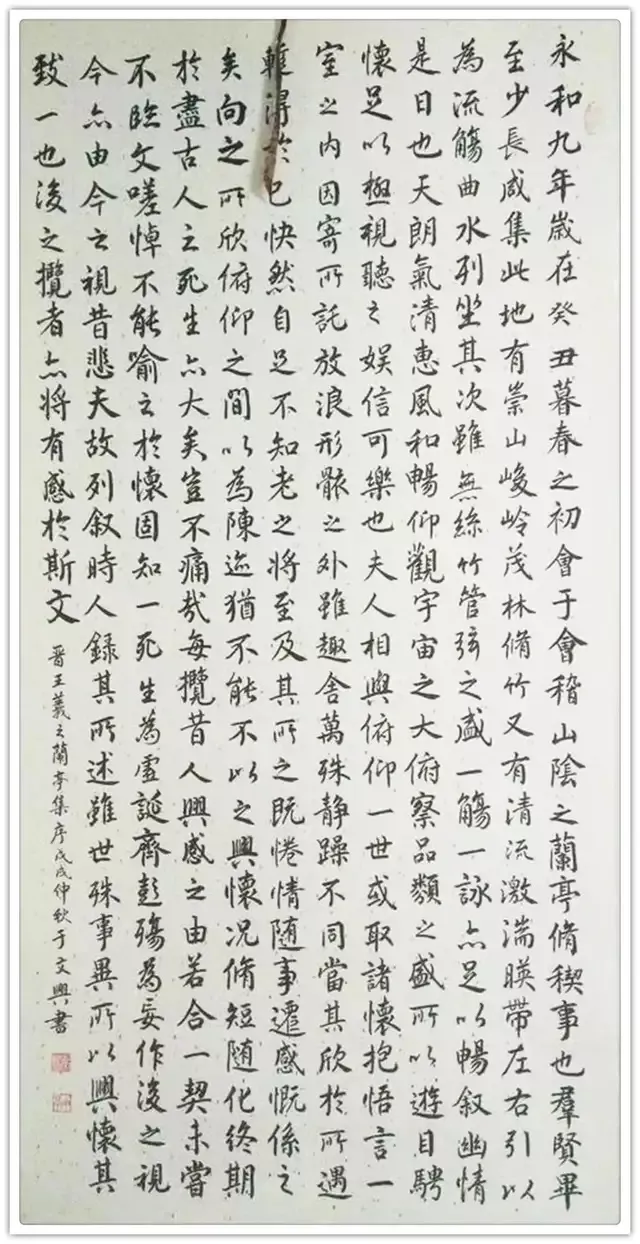 永和九年歲在癸丑暮春之初會于會稽山陰之蘭亭脩稧事也羣賢畢
至少長咸集此地有崇山峻岭茂林脩竹又有清流激湍暎帶左右引以
為流觴曲水列坐其次雖無絲竹管弦之盛一觴一詠亦足以暢叙幽情
是日也天朗氣清惠風和暢仰觀宇宙之大俯察品類之盛所以遊目騁
懷足以極視聽之娛信可樂也夫人相與俯仰一世或取諸懷抱悟言一
室之內因寄所託放浪形骸之外雖趣舍萬殊静躁不同當其欣於所遇
暫得於己快然自足不知老之將至及其所之既惓情随事遷感慨係之
矣向之所欣俯仰之間以為陳迹猶不能不以之興懷况脩短随化終期
於盡古人云死生亦大矣豈不痛哉每攬昔人興感之由若合一契未嘗
不臨文嗟悼不能喻之於懷固知一死生為虛誕齊彭殤為妄作後之視
今亦由今之視昔悲夫故列叙時人錄其所述雖世殊事異所以興懷其
致一也後之攬者亦將有感於斯文
晋王羲之蘭亭集序戊戌仲秋于文興書